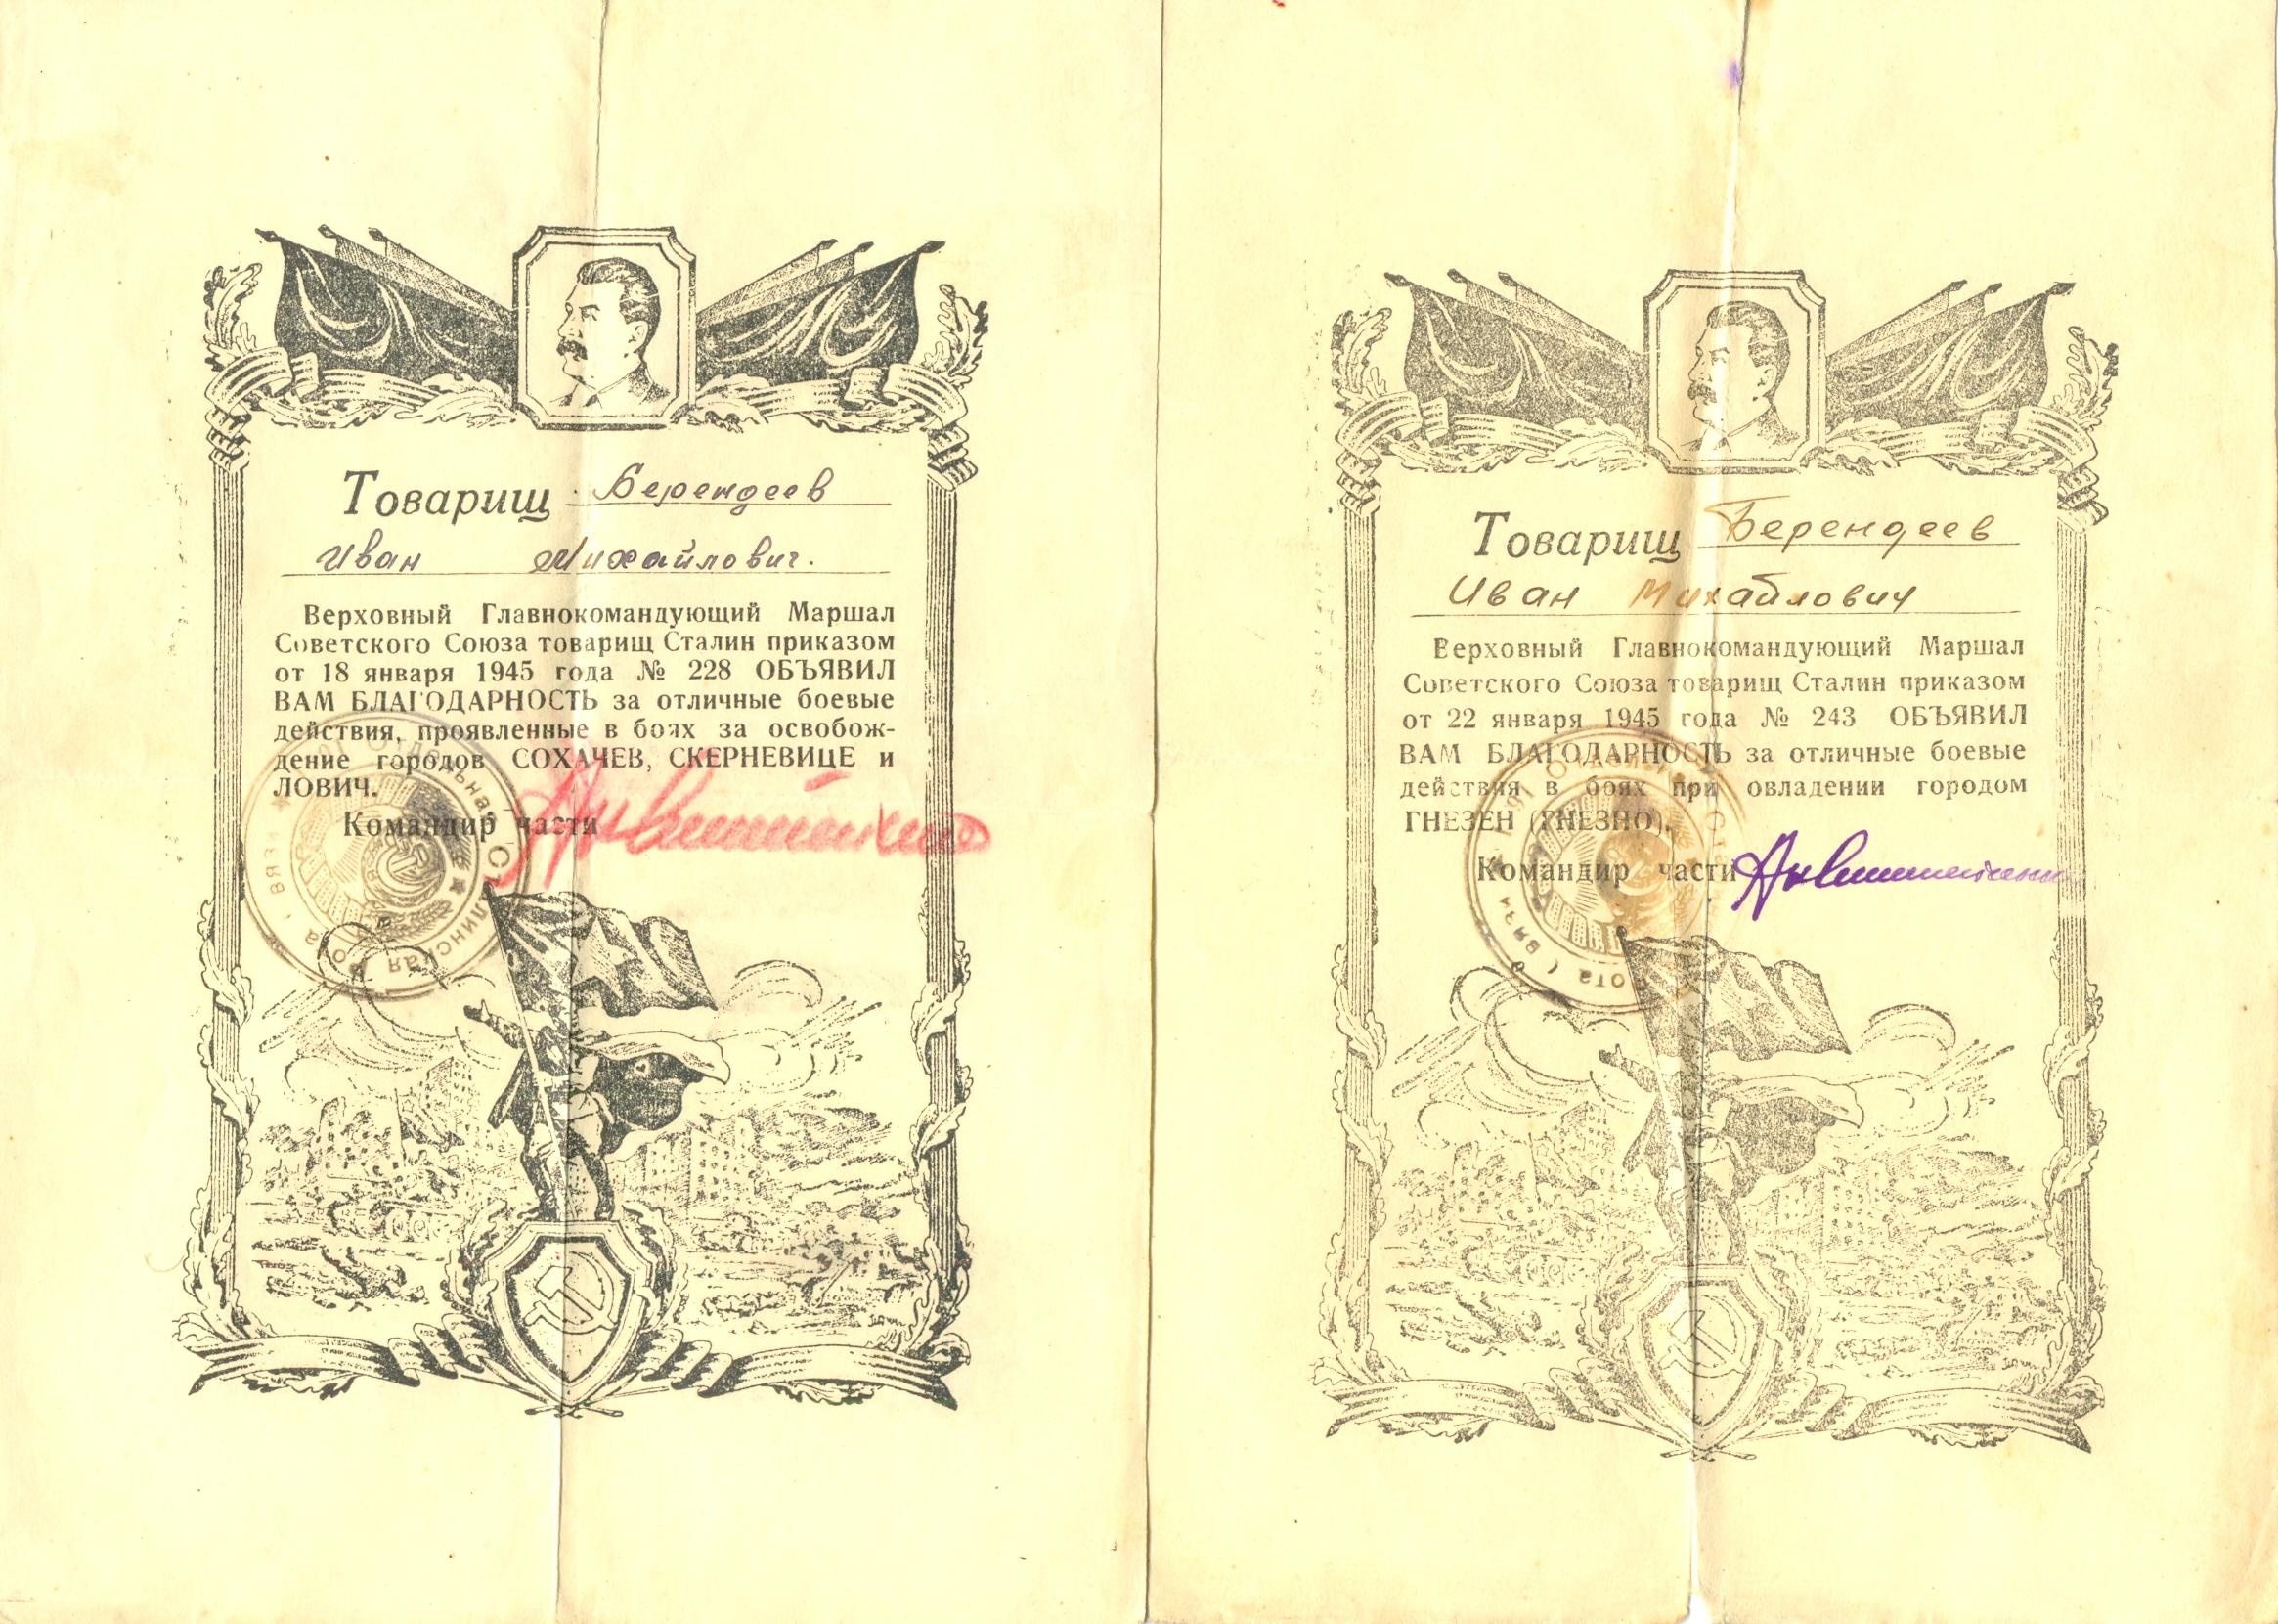 Товарищ Берендеев
Иван Михайлович.
Верховный Главнокомандующий Маршал
Советского Союза товарищ Сталин приказом
от 18 января 1945 года № 228 ОБЪЯВИЛ
ВАМ БЛАГОДАРНОСТЬ за отличные боевые
действия, проявленные в боях за освобож-
дение городов СОХАЧЕВ, СКЕРНЕВИЦЕ и
ЛОВИЧ.
Командир части
Отдельная Сталинская рота связи
Товарищ Берендеев
Иван Михайлович
Верховный Главнокомандующий Маршал
Советского Союза товарищ Сталин приказом
от 22 января 1945 года № 243 ОБЪЯВИЛ
ВАМ БЛАГОДАРНОСТЬ за отличные боевые
действия в боях при овладении городом
ГНЕЗЕН (ГНЕЗНО).
Командир части
рота связи